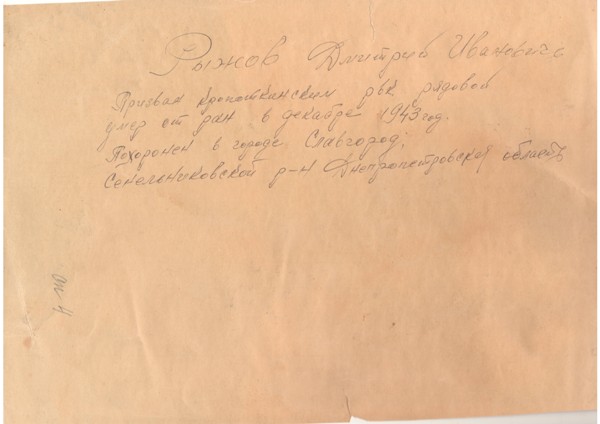 Рыжов Дмитрий Иванович
Призван Кропоткинским рвк рядовой
умер от ран в декабре 1943 год.
Похоронен в городе Славгород,
Сенельниковской р-н Днепропетровской область